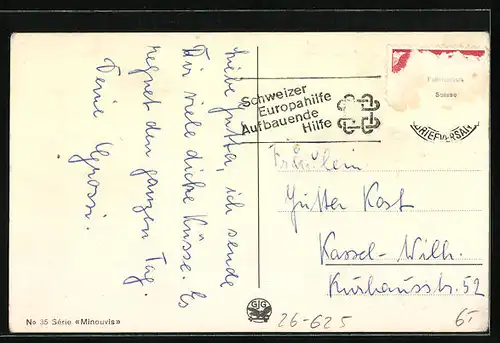 Liebe Jutta, ich sende
Dir viele dicke Küsse. Es
regnet den ganzen Tag.
Deine
Schweizer
Europahilfe
Aufbauende
Hilfe
BRIEFVERSAN
Suisse
Fräulein
Jutta Kost
Kassel-Wilh.
Kurhausstr. 52
No 35 Série «Minouvis»
26-625
6.-